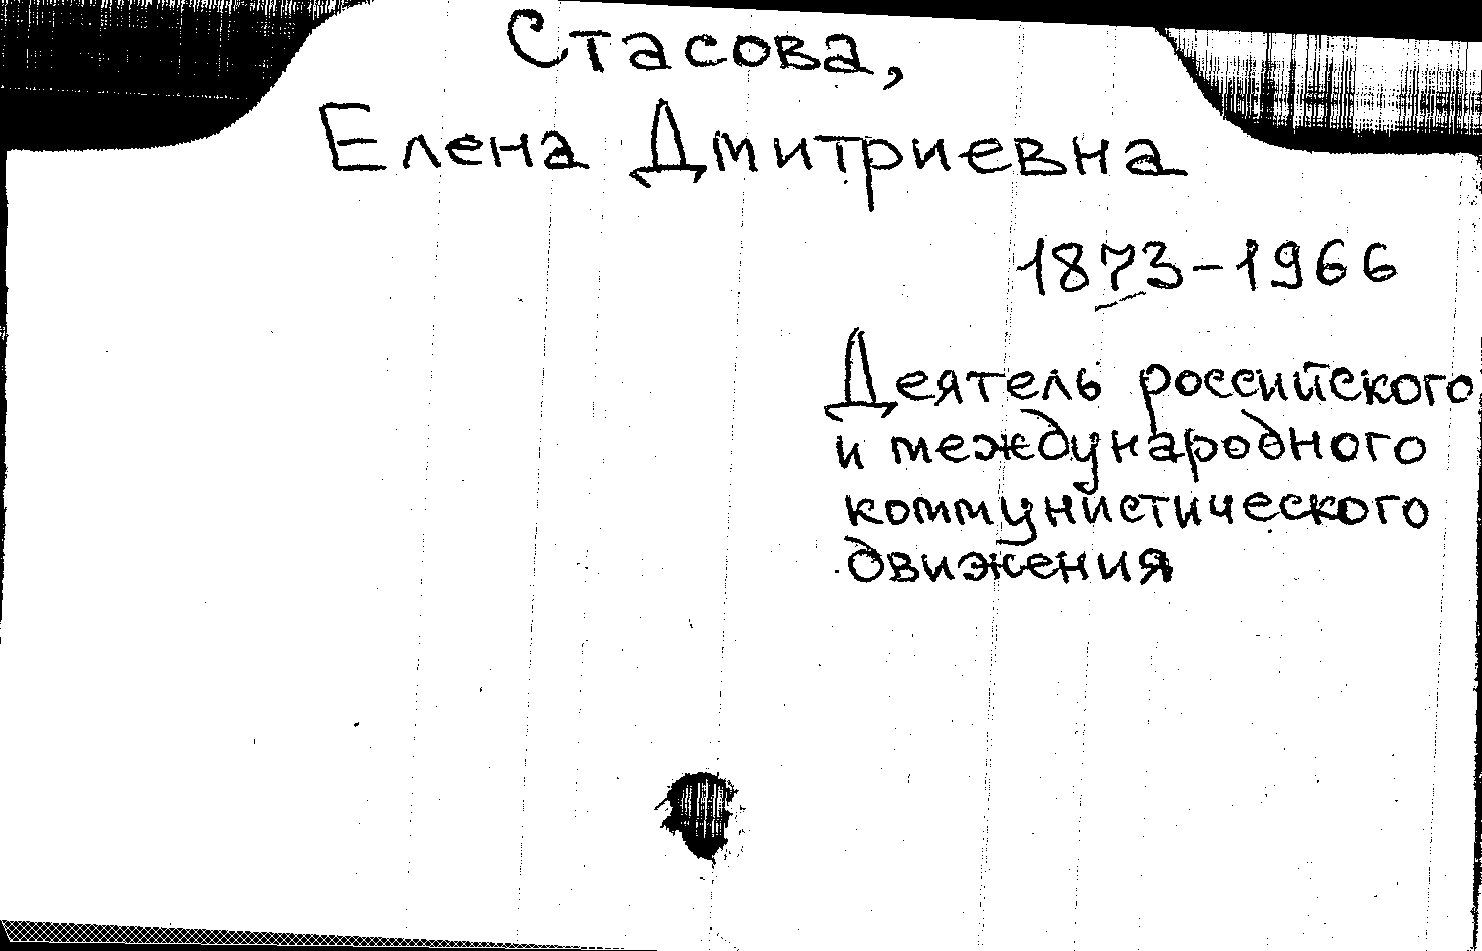 Стасова,
Елена Дмитриевна
1873-1966
Деятель российского
и международного
коммунистического
движения